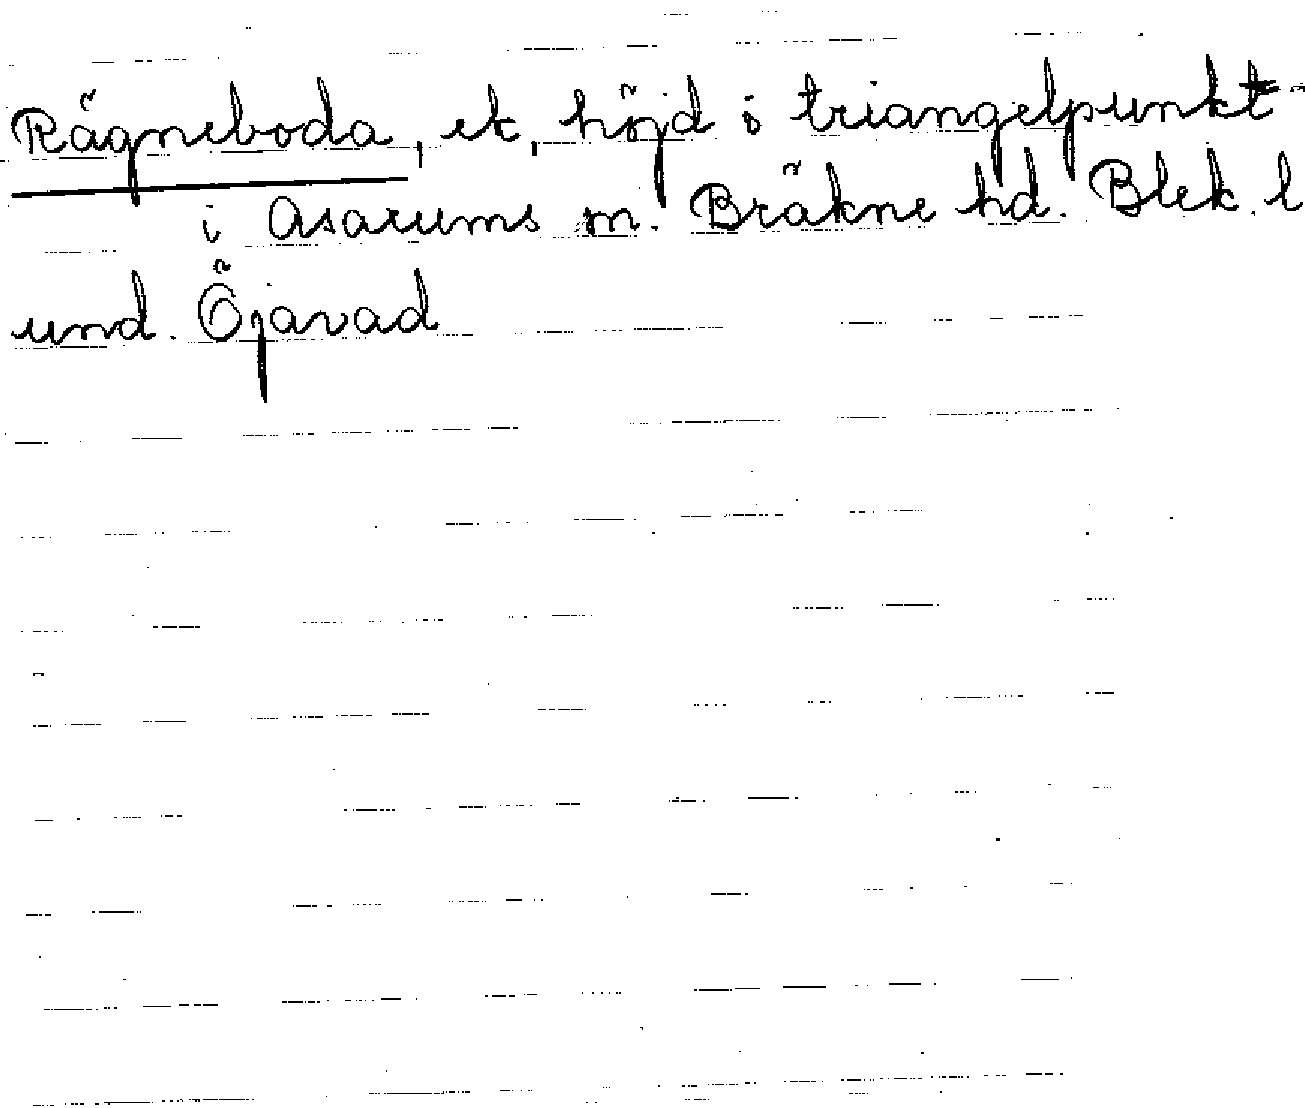 Rägneboda, ek, höjd i triangelpunkt
i Asarums sn. Bräkne hd. Blek. l
und. Öjavad